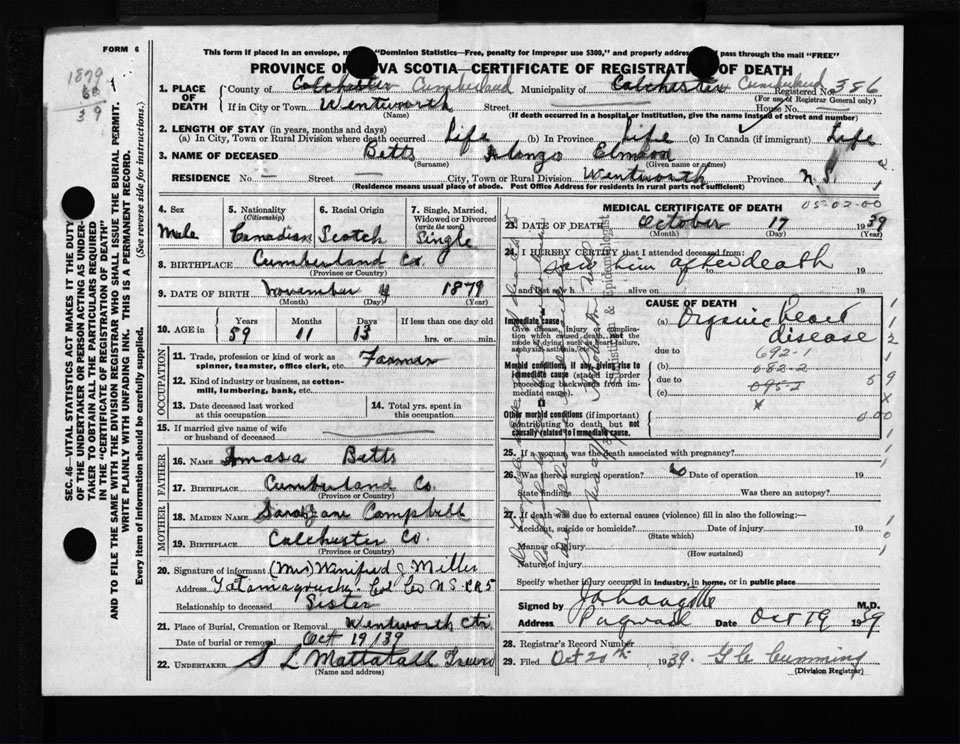 FORM 6
This form if placed in an envelope, "Dominion Statistics—Free, penalty for improper use $300," and properly addressed pass through the mail "FREE"
PROVINCE OF NOVA SCOTIA—CERTIFICATE OF REGISTRATION OF DEATH
1879
39
1. PLACE OF DEATH
County of Colchester Cumberland Municipality of Colchester Cumberland Registered No. 386
(For use of Registrar General only)
If in City or Town Wentworth Street House No.
(Name) (If death occurred in a hospital or institution, give the name instead of street and number)
2. LENGTH OF STAY (in years, months and days)
(a) In City, Town or Rural Division where death occurred Life (b) In Province Life (c) In Canada (if immigrant) Life
3. NAME OF DECEASED Betts Alonzo Elmwood
(Surname) (Given name or names)
RESIDENCE No. — Street — City, Town or Rural Division Wentworth Province N.S.
(Residence means usual place of abode. Post Office Address for residents in rural parts not sufficient)
05-02-00
4. Sex
Male
5. Nationality
(Citizenship)
Canadian
6. Racial Origin
Scotch
7. Single, Married, Widowed or Divorced
(write the word)
Single
8. BIRTHPLACE Cumberland Co.
(Province or Country)
9. DATE OF BIRTH November 4 1879
(Month) (Day) (Year)
10. AGE in
Years Months Days If less than one day old
59 11 13 hrs. or min.
OCCUPATION
11. Trade, profession or kind of work as Farmer
spinner, teamster, office clerk, etc.
12. Kind of industry or business, as cotton-mill, lumbering, bank, etc.
13. Date deceased last worked at this occupation
14. Total yrs. spent in this occupation
15. If married give name of wife or husband of deceased
FATHER
16. NAME Amasa Betts
17. BIRTHPLACE Cumberland Co.
(Province or Country)
MOTHER
18. MAIDEN NAME Sarah Jane Campbell
19. BIRTHPLACE Colchester Co.
(Province or Country)
20. Signature of informant (Mrs) Winifred J Miller
Address Tatamagouche Col Co N.S. RR5
Relationship to deceased Sister
21. Place of Burial, Cremation or Removal Wentworth Ctr.
Date of burial or removal Oct 19/39
22. UNDERTAKER S L Mattatall Truro
(Name and address)
MEDICAL CERTIFICATE OF DEATH
23. DATE OF DEATH October 17 1939
(Month) (Day) (Year)
24. I HEREBY CERTIFY that I attended deceased from:
Saw him after death
to 19
and last saw h alive on 19
CAUSE OF DEATH
Immediate cause
Give disease, injury or complication which caused death, not the mode of dying, such as heart failure, asphyxia, asthenia, etc.
(a) Organic heart disease
due to
692-1
Morbid conditions, if any, giving rise to immediate cause (stated in order proceeding backwards from immediate cause).
(b) 082-2
due to
(c) 095-1
Other morbid conditions (if important) contributing to death but not causally related to immediate cause.
25. If a woman, was the death associated with pregnancy?
26. Was there a surgical operation? Date of operation 19
State findings Was there an autopsy?
27. If death was due to external causes (violence) fill in also the following:—
Accident, suicide or homicide? Date of injury 19
(State which)
Manner of injury
(How sustained)
Nature of injury
Specify whether injury occurred in industry, in home, or in public place
Signed by M.D.
Address Pugwash Date Oct 19 1939
28. Registrar's Record Number
29. Filed Oct 20th 1939. G C Cumming
(Division Registrar)
SEC. 46—VITAL STATISTICS ACT MAKES IT THE DUTY OF THE UNDERTAKER OR PERSON ACTING AS UNDERTAKER TO OBTAIN ALL THE PARTICULARS REQUIRED IN THE "CERTIFICATE OF REGISTRATION OF DEATH" AND TO FILE THE SAME WITH THE DIVISION REGISTRAR WHO SHALL ISSUE THE BURIAL PERMIT.
WRITE PLAINLY WITH UNFADING INK. THIS IS A PERMANENT RECORD.
Every item of information should be carefully supplied. (See reverse side for instructions.)